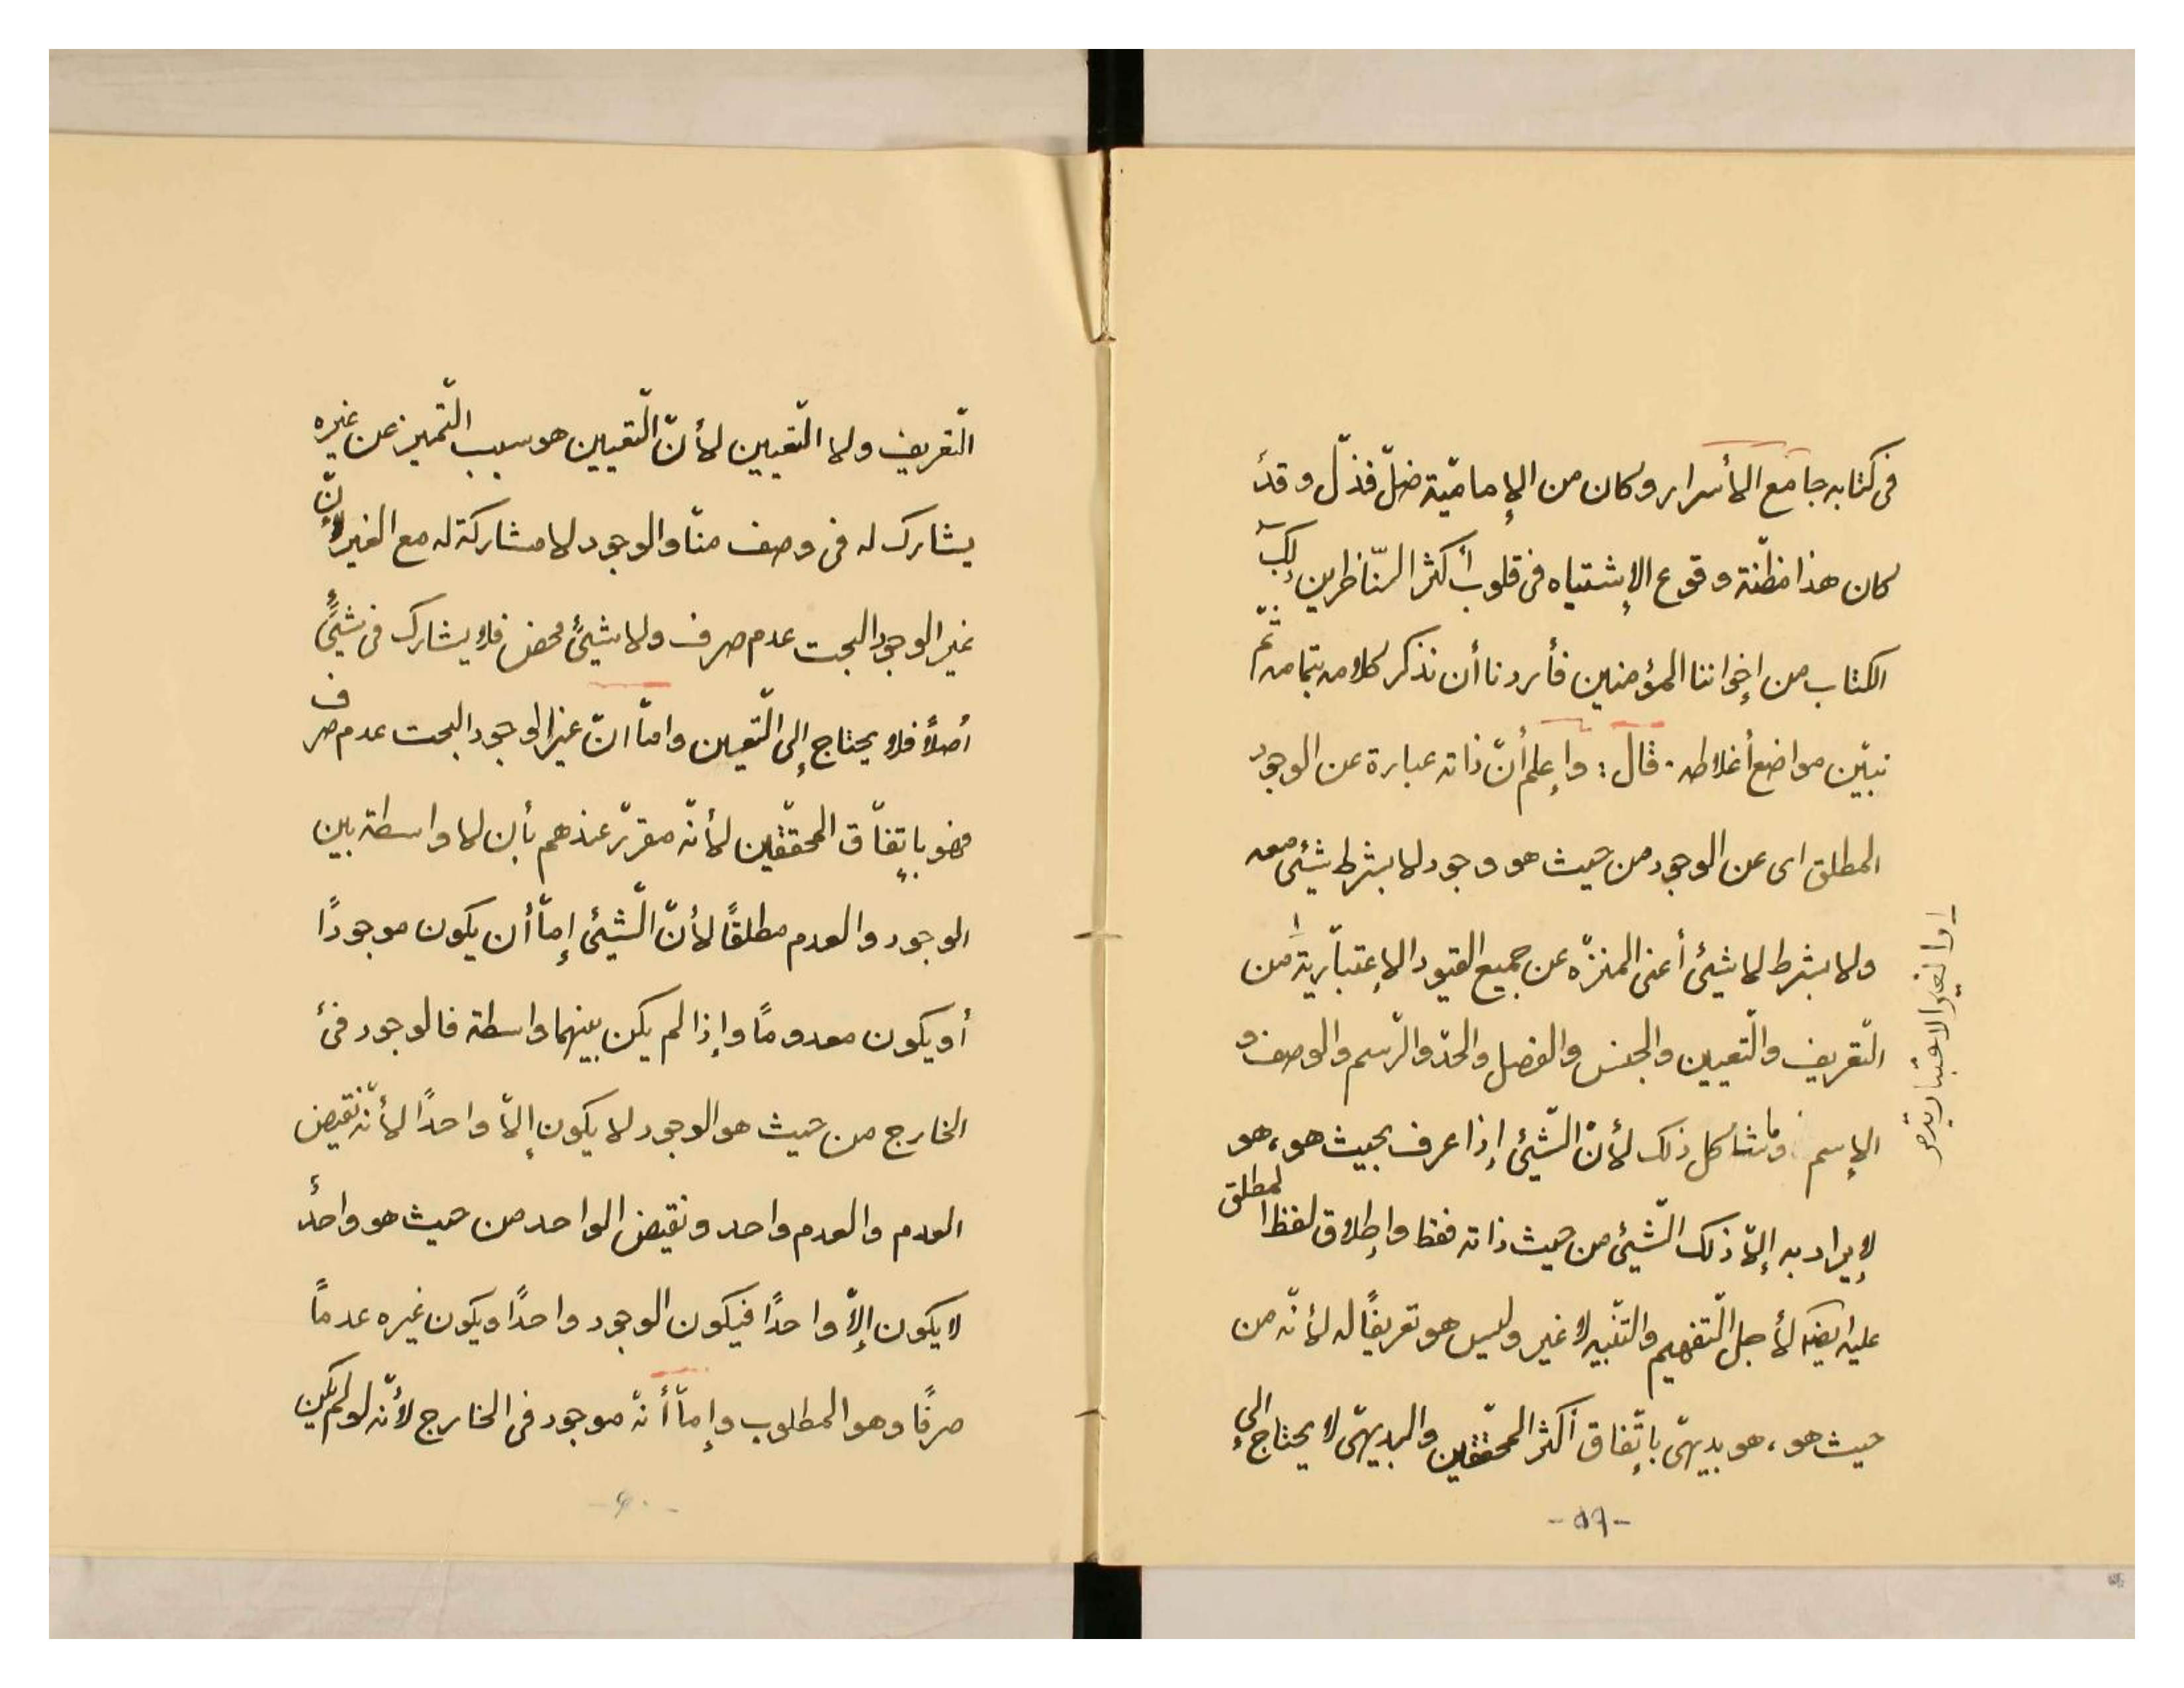 في كتابه جامع الأسرار وكان من الإماميّة ضلّ فذلّ وقد
كان هذا مظنّة وقوع الإشتباه في قلوب أكثر النّاظرين
الكتاب من إخواننا المؤمنين فأردنا أن نذكر كلامه بتمامه ثمّ
نبيّن مواضع أغلاطه. قال: وإعلم أنّ ذاته عبارة عن الوجود
المطلق اى عن الوجود من حيث هو وجود لا بشرط شيئ معه
ولا بشرط لا شيئ أعنى المنزّه عن جميع القيود الإعتباريّة ١ من
التّعريف والتّعيين والجنس والفصل والحدّ والرّسم والوصف و
الإسم وما شاكل ذلك لأنّ الشّيئ إذا عرف بحيث هو، هو
لا يراد به إلّا ذلك الشّيئ من حيث ذاته فقط وإطلاق لفظ المطلق
عليه ايضا لأجل التّفهيم والتّنبيه لا غير وليس هو تعريفًا له لأنّه من
حيث هو، هو بديهيّ بإتّفاق أكثر المحقّقين والبديهيّ لا يحتاج إلى
١ـ والغير الاعتبارية
-٥٩-
التّعريف ولا التّعيين لأنّ التّعيين هو سبب التّميز عن غيره
يشارك له في وصف منّا والوجود لا مشاركة له مع الغير لأنّ
غير الوجود البحت عدم صرف ولا شيئ محض فلا يشارك في شيئ
أصلاً فلا يحتاج إلى التّعيين وامّا انّ غير الوجود البحت عدم صرف
فهو بإتفاّق المحقّقين لأنّه مقرّر عندهم بأن لا واسطة بين
الوجود والعدم مطلقًا لأنّ الشّيئ إمّا أن يكون موجودًا
أو يكون معدومًا وإذا لم يكن بينهما واسطة فالوجود في
الخارج من حيث هو الوجود لا يكون إلّا واحدًا لأنّه نقيض
العدم والعدم واحد ونقيض الواحد من حيث هو واحد
لا يكون إلّا واحدًا فيكون الوجود واحدًا ويكون غيره عدماً
صرفًا وهو المطلوب وإمّا أنّه موجود في الخارج لأنّه لو لم يكن
-٦٠-